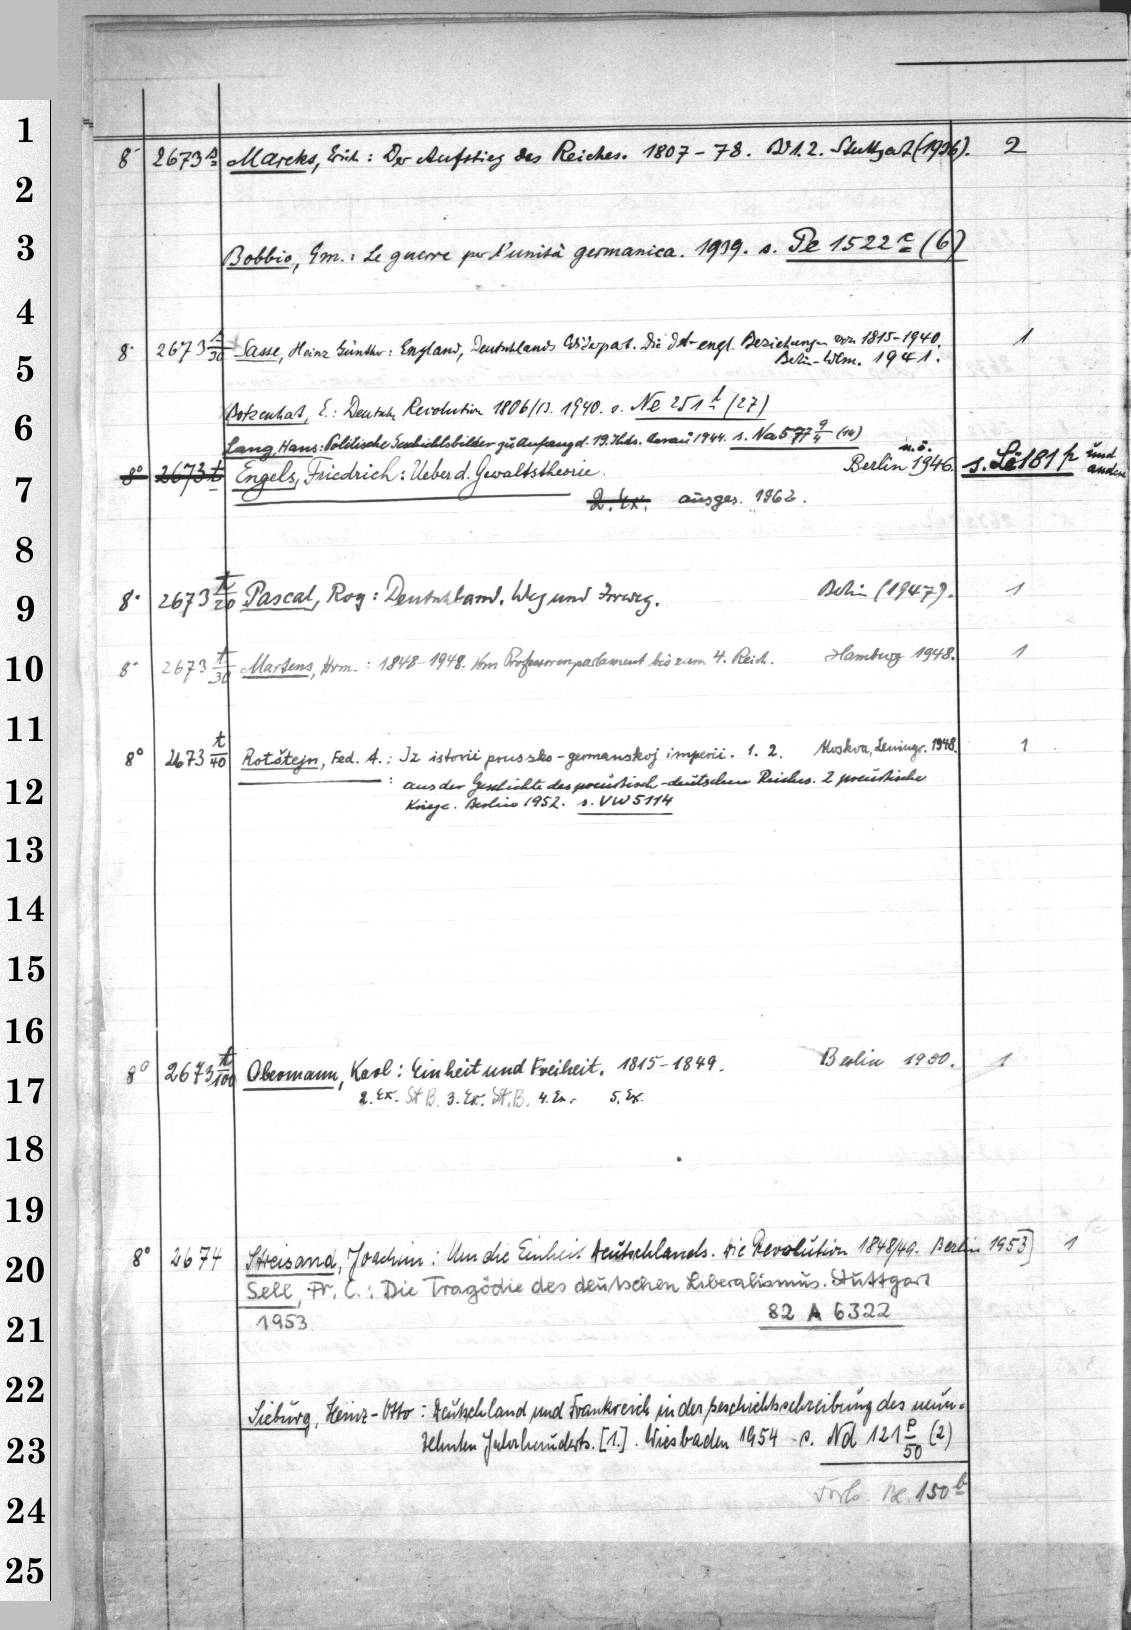 1
8° 2673 s Marcks, Erich: Der Aufstieg des Reiches. 1807-78. Bd 1.2. Stuttgart (1936). 2
2
3
Bobbio, Em.: Le guerre per l'unità germanica. 1939. s. Pe 1522 c (6)
4
8° 2673 s/30 Sasse, Heinz Günther: England, Deutschlands Widerpart. Die dt-engl. Beziehungen von 1815-1940. 1
5
Berlin-Wilm. 1941.
Botzenhart, E.: Deutsche Revolution 1806/13. 1940. s. Ne 251 t (27)
6
Lang, Hans: Politische Geschichtsbilder zu Anfang d. 19. Jhds. Aarau 1944. s. Na 597 9/4 (14)
8° 2673 t Engels, Friedrich: Ueber d. Gewaltstheorie. Berlin 1946. u.ö. s. Lë 181 p und andere
7
2. Ex. ausges. 1962.
8
9
8° 2673 t/20 Pascal, Roy: Deutschland. Weg und Irrweg. Berlin (1947). 1
10
8° 2673 t/30 Martens, Hrm.: 1848-1948. Vom Professorenparlament bis zum 4. Reich. Hamburg 1948. 1
11
8° 2673 t/40 Rotštejn, Fed. A.: Iz istorii prussko-germanskoj imperii. 1. 2. Moskva, Leningr. 1948. 1
12
: aus der Geschichte des preußisch-deutschen Reiches. 2 preußische
Kriege. Berlin 1952. s. VW 5114
13
14
15
16
17
8° 2673 t/100 Obermann, Karl: Einheit und Freiheit. 1815-1849. Berlin 1950. 1
2. Ex. St B. 3. Ex. St. B. 4. Ex. 5. Ex.
18
19
20
8° 2674 Streisand, Joachim: Um die Einheit Deutschlands. Die Revolution 1848/49. Berlin 1953] 1
Sell, Fr. C.: Die Tragödie des deutschen Liberalismus. Stuttgart
21
1953. 82 A 6322
22
Sieburg, Heinz-Otto: Deutschland und Frankreich in der Geschichtsschreibung des neun-
23
zehnten Jahrhunderts. [1.]. Wiesbaden 1954 s. Nd 121 p/50 (2)
24
150 b
25